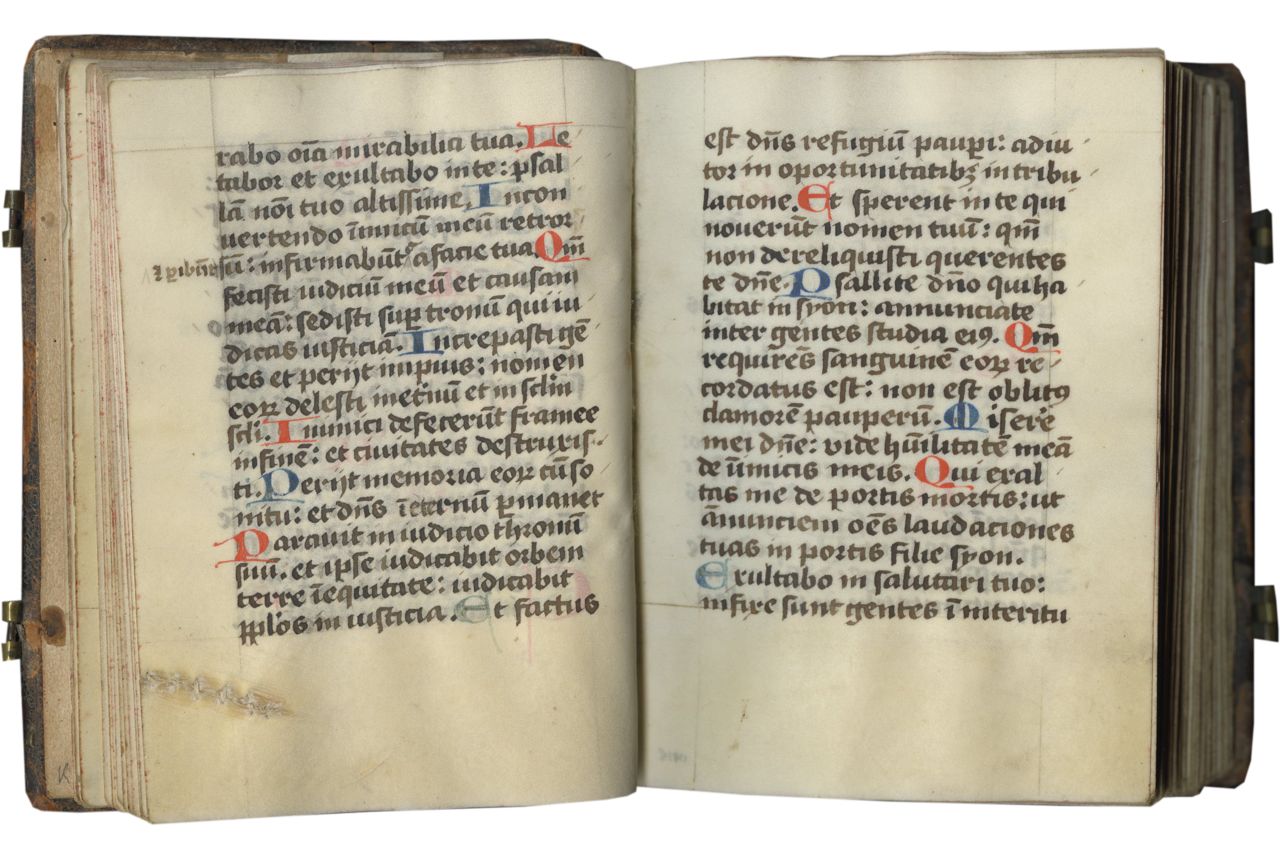 rabo oīa mirabilia tua. Le
tabor et exultabo in te: psal
lā noī tuo altissime. Incon
uertendo īimicū meū retror
⁊ ꝑibūt sū: infirmabunt᷑ a facie tua. Qm̄
fecisti iudiciū meū et causam
meā: sedisti suꝑ tronū qui iu
dicas iusticiā. Increpasti gē
tes et perijt impius: nomen
eoꝝ delesti ī eternū et in sclm̄
scli. Inimici defecerūt framee
in finē: et ciuitates destruxis
ti. Perijt memoria eoꝝ cū so
nitu: et dn̄s ī eternū ꝑmanet
Parauit in iudicio thronū
suū. et ipse iudicabit orbem
terre ī equitate: iudicabit
pplos in iusticia. Et factus
est dn̄s refugiū pauꝑi: adiu
tor in oportunitatibꝫ in tribu
lacione. Et sperent in te qui
nouerūt nomen tuū: qm̄
non dereliquisti querentes
te dn̄e. Psallite dn̄o qui ha
bitat in syon: annunciate
inter gentes studia eiꝰ. Qm̄
requirēs sanguinē eoꝝ re
cordatus est: non est oblitꝰ
clamorē pauperū. Misere
mei dn̄e: vide hūilitatē meā
de inimicis meis. Qui exal
tas me de portis mortis: ut
ānunciem oēs laudaciones
tuas in portis filie syon.
Exultabo in salutari tuo:
infixe sunt gentes ī interitu